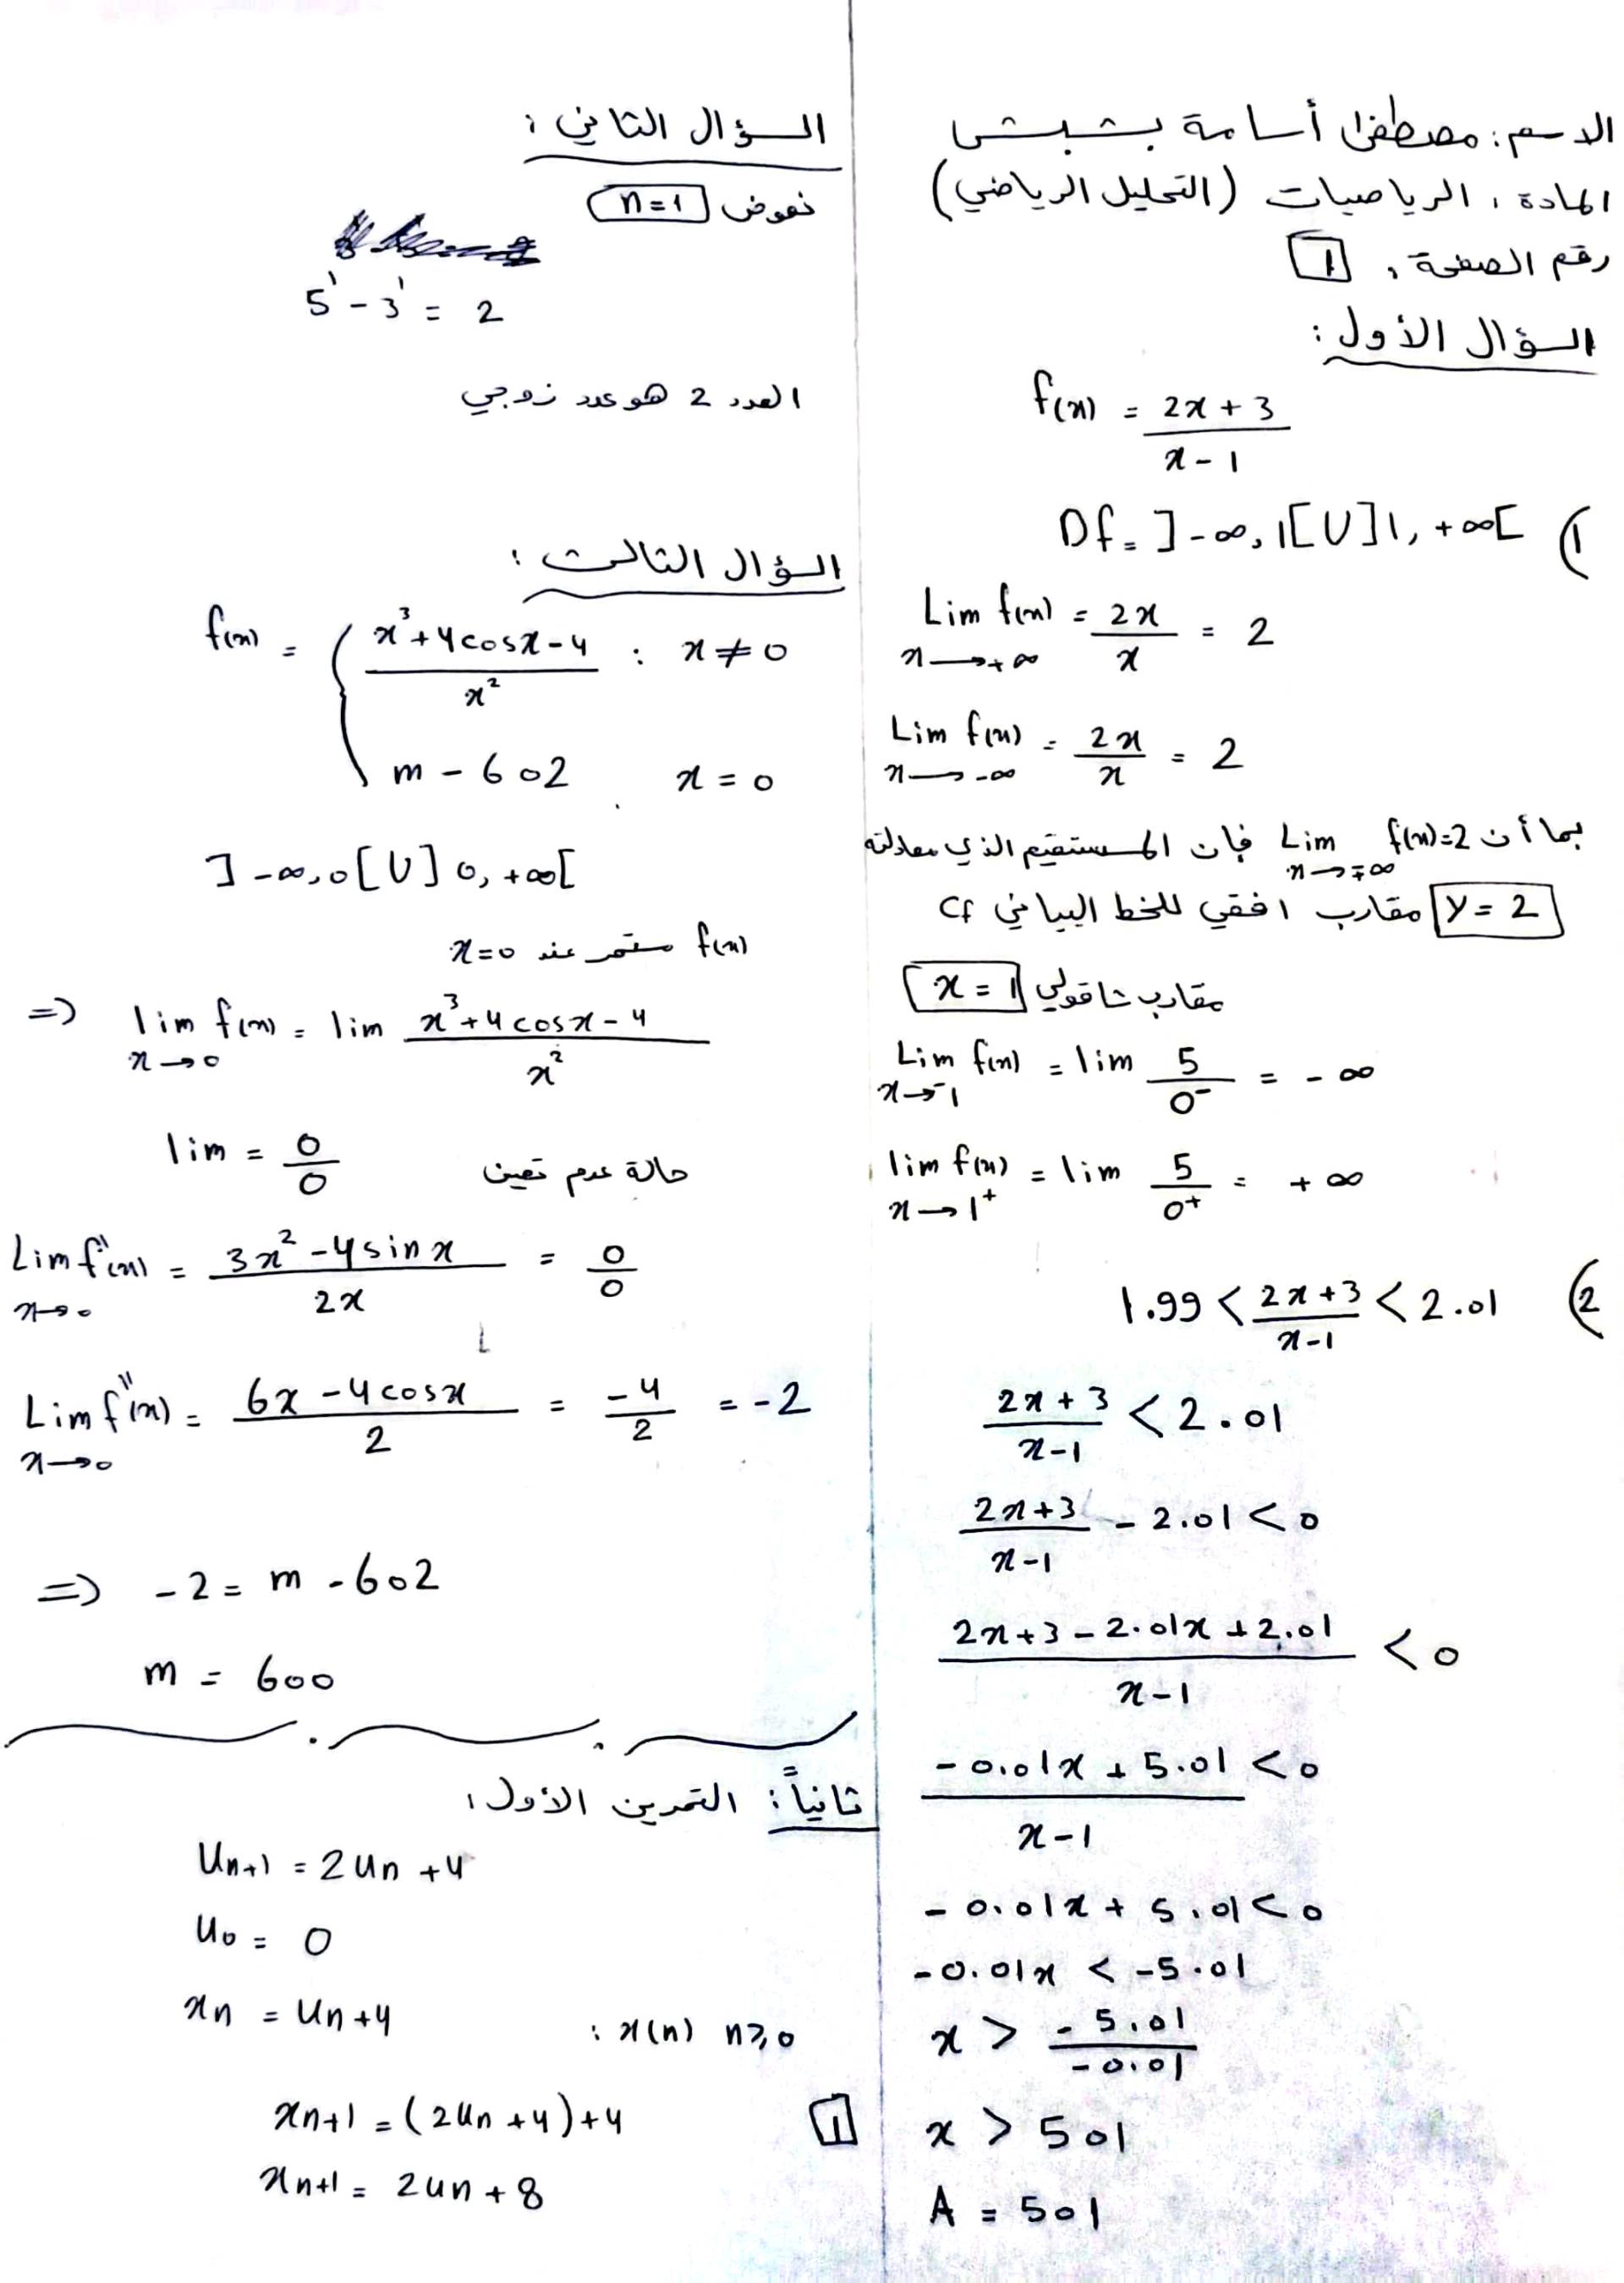 الاسم: مصطفى أسامة بشبش
المادة: الرياضيات (التحليل الرياضي)
رقم الصفحة: 1
السؤال الأول:
f(x) = (2x + 3)/(x - 1)
1) Df = ]-∞, 1[ U ]1, +∞[
Lim f(x) = 2x/x = 2
x → +∞
Lim f(x) = 2x/x = 2
x → -∞
بما أن Lim f(x)=2 فإن المستقيم الذي معادلته
x → ∓∞
y = 2 مقارب افقي للخط البياني Cf
مقارب شاقولي x = 1
Lim f(x) = lim 5/0⁻ = -∞
x → 1⁻
lim f(x) = lim 5/0⁺ = +∞
x → 1⁺
2) 1.99 < (2x + 3)/(x-1) < 2.01
(2x + 3)/(x-1) < 2.01
(2x+3)/(x-1) - 2.01 < 0
(2x+3 - 2.01x + 2.01)/(x-1) < 0
(-0.01x + 5.01)/(x-1) < 0
-0.01x + 5.01 < 0
-0.01x < -5.01
x > -5.01/-0.01
x > 501
A = 501
السؤال الثاني:
نعوض n=1
5¹ - 3¹ = 2
العدد 2 هو عدد زوجي
السؤال الثالث:
f(x) = { (x³ + 4cosx - 4)/x² : x ≠ 0
m - 602 x = 0
]-∞, 0[ U ]0, +∞[
f(x) مستمر عند x=0
=> lim f(x) = lim (x³ + 4cosx - 4)/x²
x → 0
lim = 0/0 حالة عدم تعين
Lim f'(x) = (3x² - 4sinx)/2x = 0/0
x → 0
Lim f''(x) = (6x - 4cosx)/2 = -4/2 = -2
x → 0
=> -2 = m - 602
m = 600
ثانياً: التمرين الأول:
Un+1 = 2Un + 4
U0 = 0
xn = Un + 4 : x(n) n≥0
xn+1 = (2Un + 4) + 4
xn+1 = 2un + 8
1